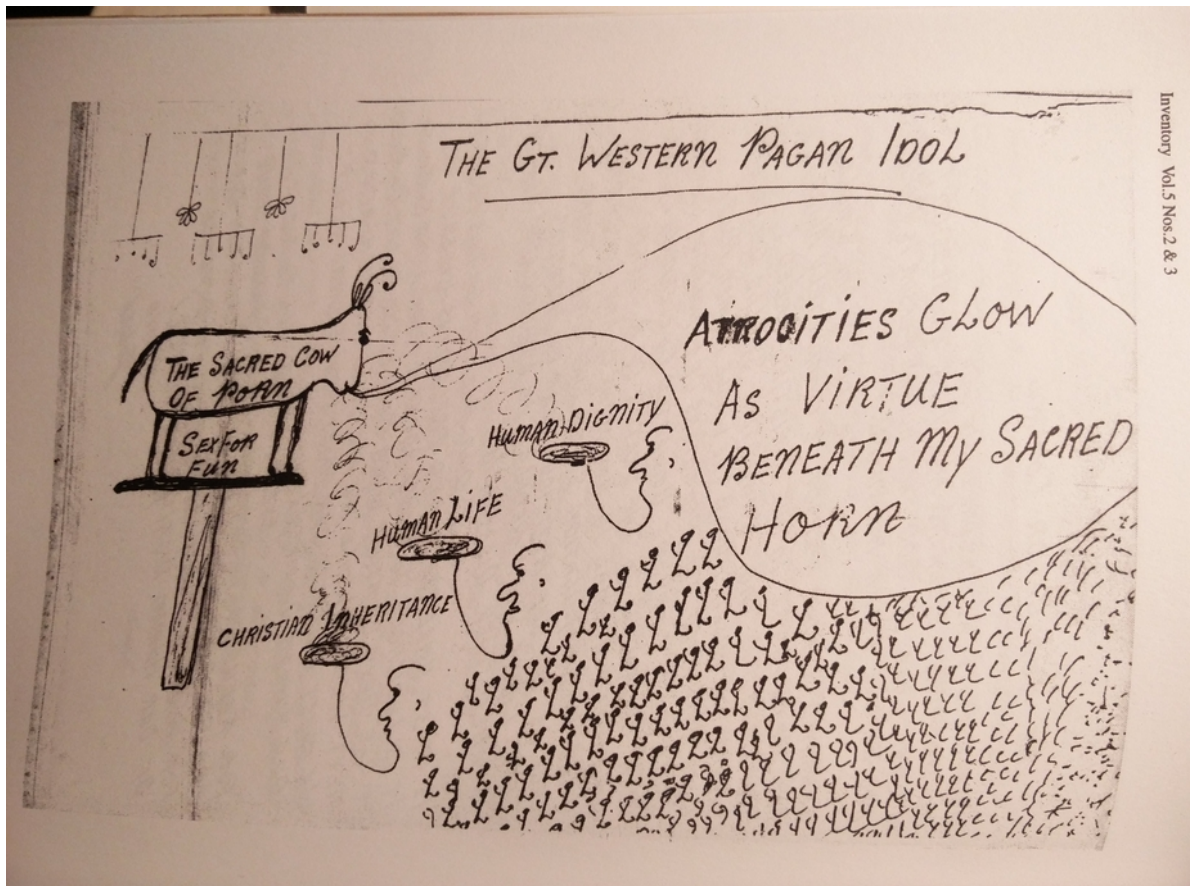 Inventory Vol.5 Nos.2 & 3
THE GT. WESTERN PAGAN IDOL
THE SACRED COW
OF PORN
SEX FOR
FUN
ATROCITIES GLOW
AS VIRTUE
BENEATH MY SACRED
HORN
HUMAN DIGNITY
HUMAN LIFE
CHRISTIAN INHERITANCE